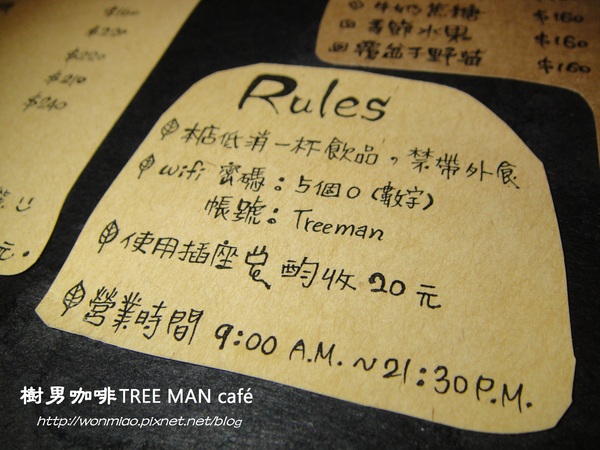 $180
$220
$220
$210
$240
元。
牛奶焦糖 $160
季節水果 $160
覆盆子野莓 $160
Rules
本店低消一杯飲品，禁帶外食
wifi 密碼：5個0(數字)
帳號：Treeman
使用插座 酌收 20元
營業時間 9:00 A.M.~21:30P.M.
樹男咖啡TREE MAN café
http://wonmiao.pixnet.net/blog